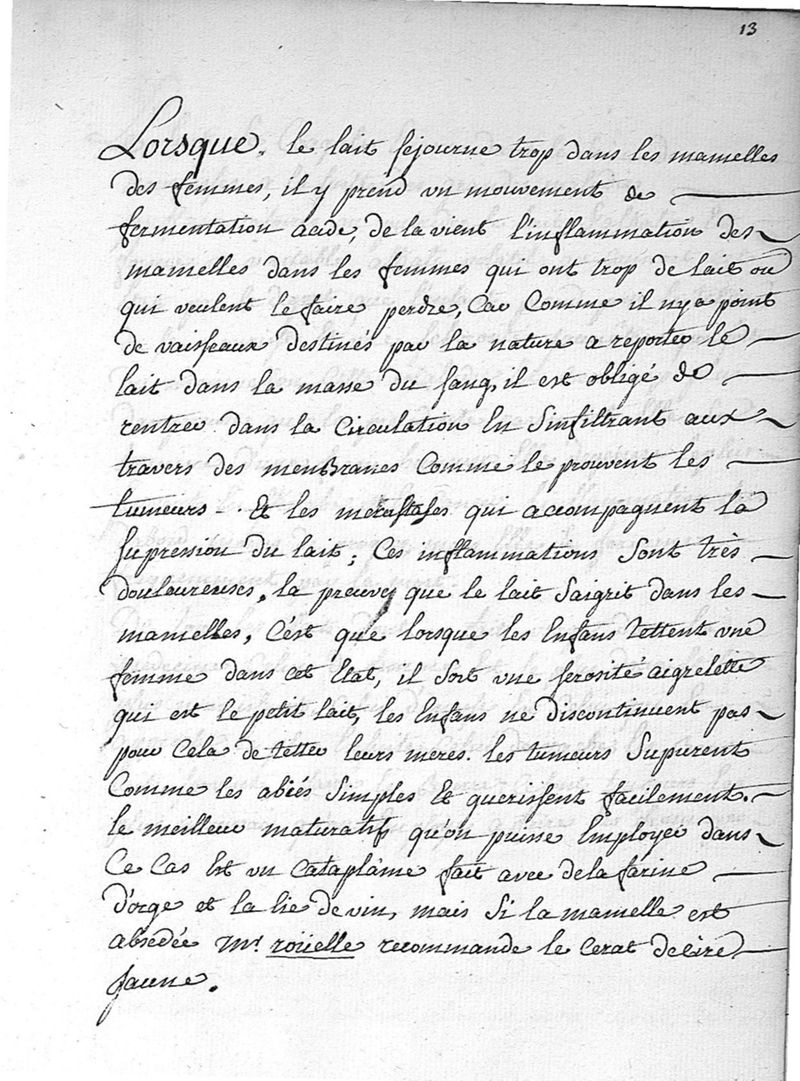 13
Lorsque le lait sejourne trop dans les mamelles
des femmes, il y prend un mouvement de
fermentation acide, de la vient l'inflammation des
mamelles dans les femmes qui ont trop de lait ou
qui veulent le faire perdre, Car Comme il ny a point
de vaisseaux destinés par la nature a reporter le
lait dans la masse du sang, il est obligé de
rentrer dans la Circulation En S'infiltrant aux
travers des membranes Comme le prouvent les
tumeurs. Et les metastases qui accompagnent la
Supression du lait; Ces inflammations Sont très
douloureuses, la preuve que le lait Saigrit dans les
mamelles, C'est que lorsque les Enfans tettent une
femme dans cet Etat, il Sort une serosité aigrelette
qui est le petit lait, les Enfans ne discontinuent pas
pour Cela de tetter leurs meres. les tumeurs Supurent
Comme les abcés Simples Et guerissent facilement.
le meilleur maturatif qu'on puisse Employer dans
Ce Cas Est un Cataplâme fait avec de la farine
d'orge et la lie de vin, mais Si la mamelle est
absedée Mr. roüelle recommande le Cerat de Cire
jaune.